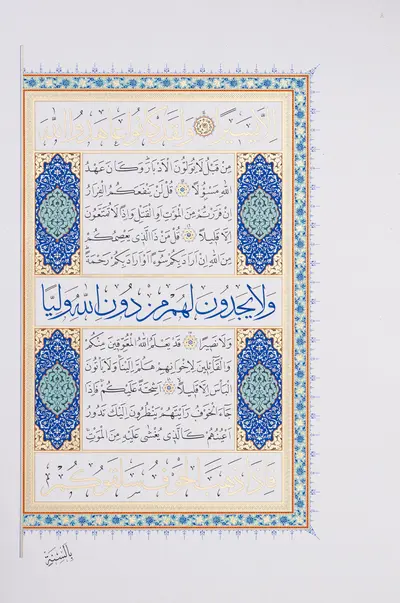 إِلَّا يَسِيرًا وَلَقَدْ كَانُوا عَاهَدُوا اللهَ
مِنْ قَبْلُ لَا يُوَلُّونَ الْأَدْبَارَ وَكَانَ عَهْدُ
اللهِ مَسْؤُلًا قُلْ لَنْ يَنْفَعَكُمُ الْفِرَارُ
إِنْ فَرَرْتُمْ مِنَ الْمَوْتِ أَوِ الْقَتْلِ وَإِذًا لَا تُمَتَّعُونَ
إِلَّا قَلِيلًا قُلْ مَنْ ذَا الَّذِي يَعْصِمُكُمْ
مِنَ اللهِ إِنْ أَرَادَ بِكُمْ سُوءًا أَوْ أَرَادَ بِكُمْ رَحْمَةً
وَلَا يَجِدُونَ لَهُمْ مِنْ دُونِ اللهِ وَلِيًّا
وَلَا نَصِيرًا قَدْ يَعْلَمُ اللهُ الْمُعَوِّقِينَ مِنْكُمْ
وَالْقَائِلِينَ لِإِخْوَانِهِمْ هَلُمَّ إِلَيْنَا وَلَا يَأْتُونَ
الْبَأْسَ إِلَّا قَلِيلًا أَشِحَّةً عَلَيْكُمْ فَإِذَا
جَاءَ الْخَوْفُ رَأَيْتَهُمْ يَنْظُرُونَ إِلَيْكَ تَدُورُ
أَعْيُنُهُمْ كَالَّذِي يُغْشَى عَلَيْهِ مِنَ الْمَوْتِ
فَإِذَا ذَهَبَ الْخَوْفُ سَلَقُوكُمْ
بِأَلْسِنَةٍ